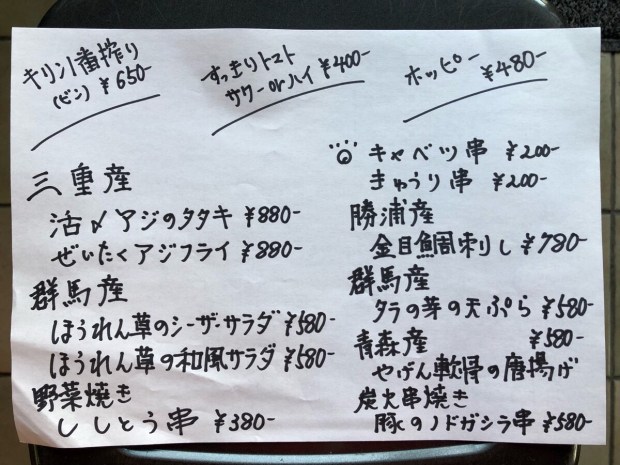 キリン1番搾り
(ビン) ¥650-
すっきりトマト
サワーorハイ ¥400-
ホッピー ¥480-
三重産
活〆アジのタタキ ¥880-
ぜいたくアジフライ ¥880-
群馬産
ほうれん草のシーザーサラダ ¥580-
ほうれん草の和風サラダ ¥580-
野菜焼き
ししとう串 ¥380-
キャベツ串 ¥200-
きゅうり串 ¥200-
勝浦産
金目鯛刺し ¥780-
群馬産
タラの芽の天ぷら ¥580-
青森産 ¥580-
やげん軟骨の唐揚げ
炭火串焼き
豚のノドガシラ串 ¥580-